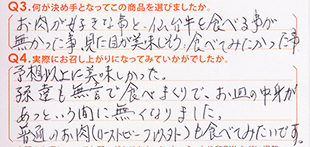 Q3.何が決め手となってこの商品を選びましたか。
お肉が好きな事と、仙台牛を食べる事が
無かった事、見た目が美味しそう、食べてみたかった事
Q4.実際にお召し上がりになってみていかがでしたか。
予想以上に美味しかった。
孫達も無言で食べまくりで、お皿の中身が
あっという間に無くなりました。
普通のお肉(ローストビーフ以外)も食べてみたいです。